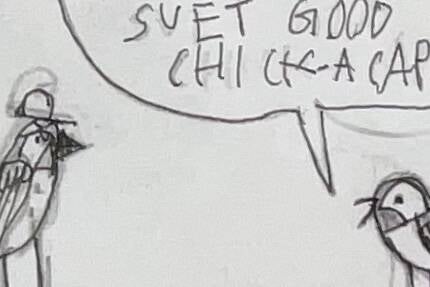 SUET GOOD
CHICK-A CAP